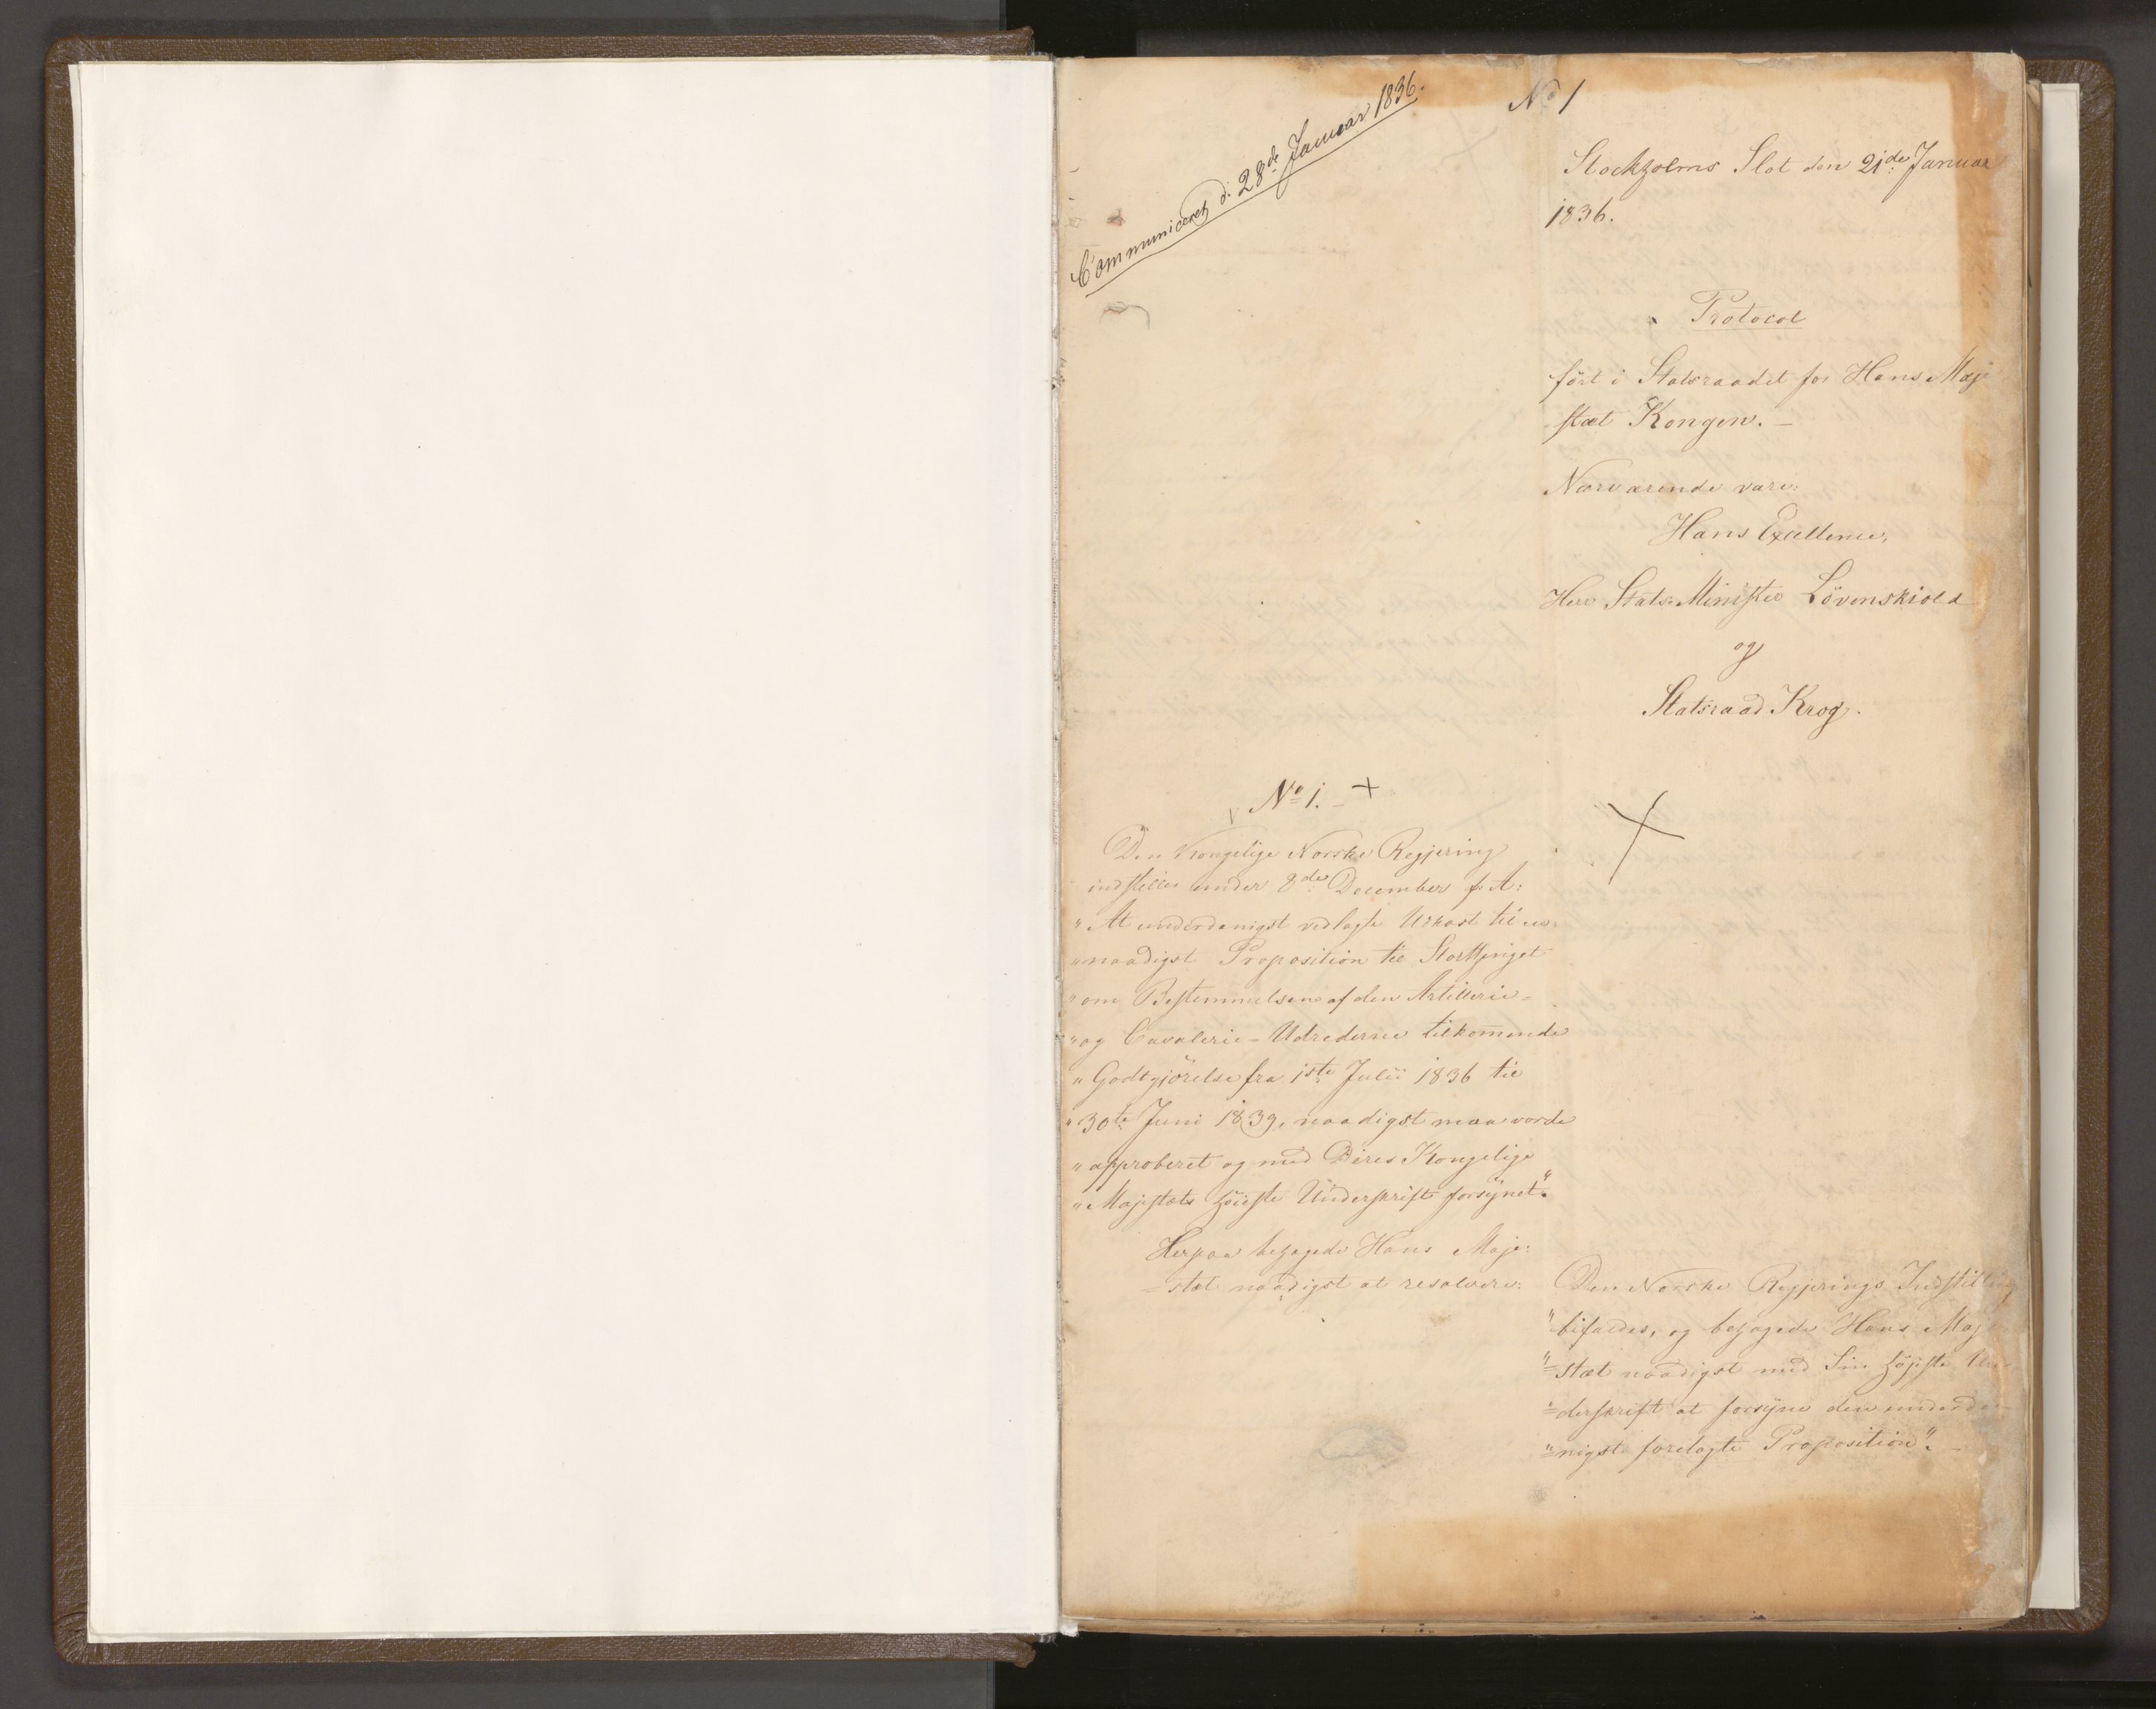 Communiceret d: 28de Januar 1836.
No 1
Stockholms Slot den 21de Januar
1836.
Protocol
ført i Statsraadet for Hans Maj
stæt Kongen. –
Nærværende vare:
Hans Excellence,
Herr Stats-Minister Løvenskiold
og
Statsraad Krog.
No 1. – +
Den Kongelige Norske Regjering
indstiller under 8de December f. A:
" At underdanigst vedlagte Udkast til en
" naadigst Proposition til Storthinget
" om Bestemmelsen af den Artillerie-
" og Cavalerie-Udrederne tilkommende
" Godtgjörelse fra 1ste Julii 1836 til
" 30te Juni 1839, naadigst maa vorde
" approberet og med Deres Kongelige
" Majestæts höieste Underskrift forsynet".
Herpaa behagede Hans Maje:
=stæt naadigst at resolvere:
Den Norske Regjerings Indstilling
" bifaldes, og behagede Hans Maj
"=stæt naadigst med Sin højeste Un
"=derskrift at forsyne den underda
"=nigst forelagte Proposition". –